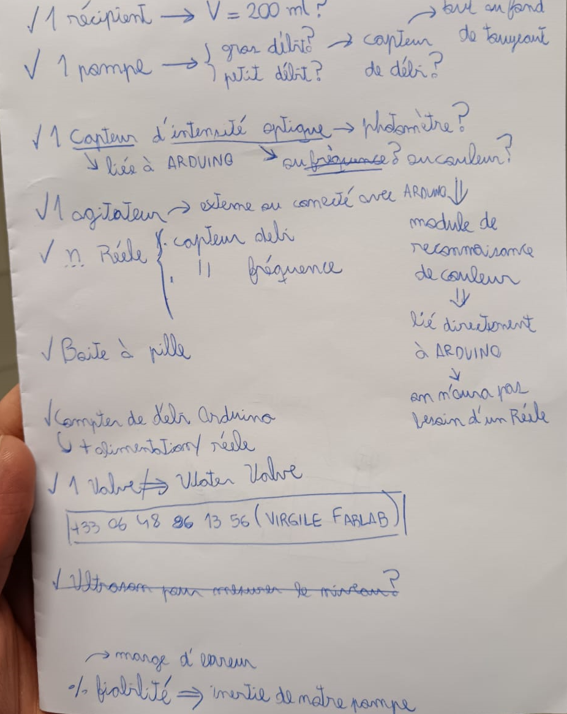 ✓ 1 récipient → V = 200 ml ?
→ tout au fond
de tuyeaut
✓ 1 pompe → { gros débit? → capteur
petit débit? de débi?
✓ 1 Capteur d'intensité optique → photomètre?
↳ liée à ARDUINO ↘ ou fréquence? ou couleur?
✓ 1 agitateur → externe ou conecté avec ARDUINO
⇓
module de
reconnaisance
de couleur
⇓
lié directement
à ARDUINO
↓
on n'aura pas
besoin d'un Réele
✓ n Réele { . capteur debi
. '' fréquence
✓ Boite à pille
✓ Compter de débi arduino
↳ + alimentation / réele
✓ 1 Valve ⇒ Water Valve
+33 06 48 86 13 56 (VIRGILE FABLAB)
✓ Ultrason pour mesurer le niveau?
→ marge d'erreur
% fiabilité ⇒ inertie de notre pompe